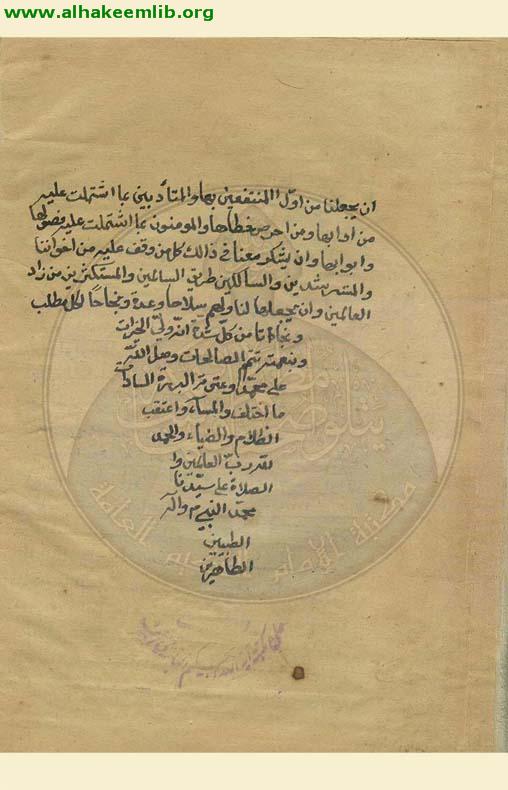 www.alhakeemlib.org
ان يجعلنا من اوّل المنتفعين بها والمتأدبين بما اشتملت عليه
من ادابها ومن احرص والمومنون بما اشتملت عليه فصولها
وابوابها وان معنا في ذالك كل من وقف عليه من اخواننا
والمسترشدين والسالكين طريق السالمين والمستكثرين من زاد
العالمين وان يجعلها لنا ولهم سلاحا وعدة ونجاحًا لكل مطلب
ونجاتا من كل شدة انه وليّ الخيرات
وبنعمته تتم الصالحات وصلى الله
على محمد وعترته البررة السادات
ما اختلف والمسآء واعتقب
الظلام والضياء والحمد
لله ربّ العالمين وا
الصلاة على سيّدنا
محمد النبي م وآله
الطيبين
الطاهرين